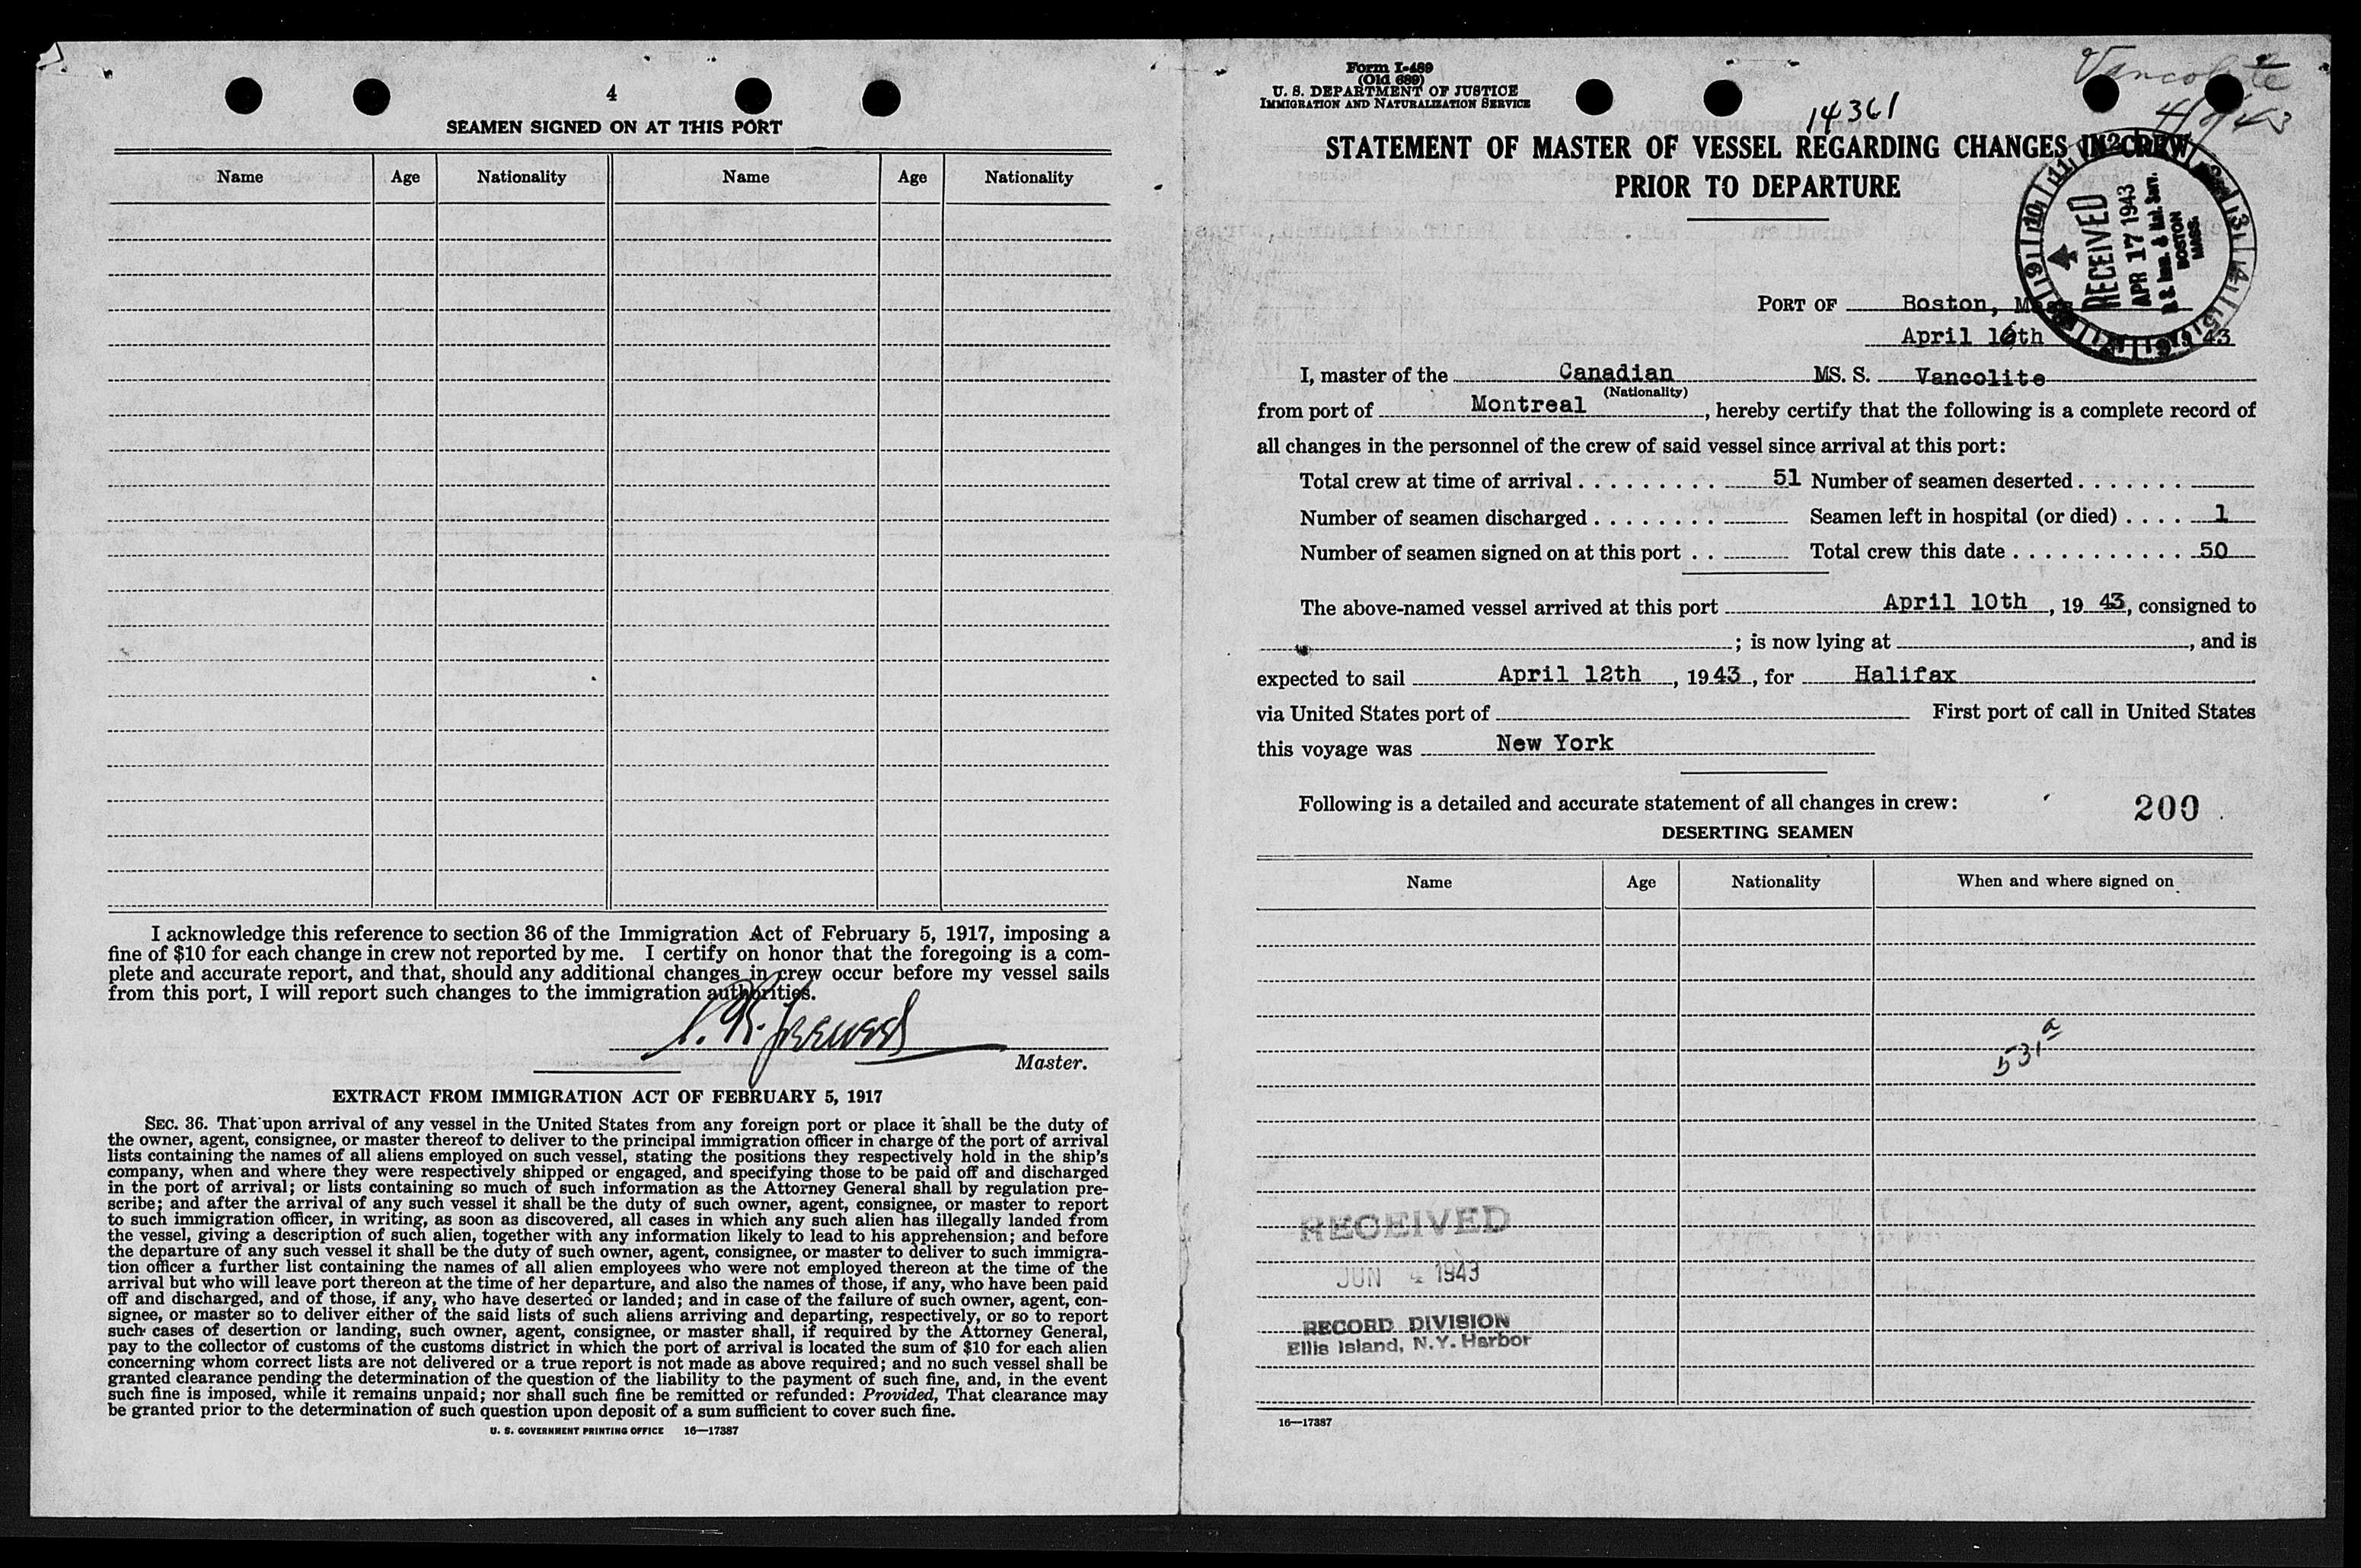 4
SEAMEN SIGNED ON AT THIS PORT
Name Age Nationality Name Age Nationality
I acknowledge this reference to section 36 of the Immigration Act of February 5, 1917, imposing a
fine of $10 for each change in crew not reported by me. I certify on honor that the foregoing is a com-
plete and accurate report, and that, should any additional changes in crew occur before my vessel sails
from this port, I will report such changes to the immigration authorities.
Master.
EXTRACT FROM IMMIGRATION ACT OF FEBRUARY 5, 1917
SEC. 36. That upon arrival of any vessel in the United States from any foreign port or place it shall be the duty of
the owner, agent, consignee, or master thereof to deliver to the principal immigration officer in charge of the port of arrival
lists containing the names of all aliens employed on such vessel, stating the positions they respectively hold in the ship's
company, when and where they were respectively shipped or engaged, and specifying those to be paid off and discharged
in the port of arrival; or lists containing so much of such information as the Attorney General shall by regulation pre-
scribe; and after the arrival of any such vessel it shall be the duty of such owner, agent, consignee, or master to report
to such immigration officer, in writing, as soon as discovered, all cases in which any such alien has illegally landed from
the vessel, giving a description of such alien, together with any information likely to lead to his apprehension; and before
the departure of any such vessel it shall be the duty of such owner, agent, consignee, or master to deliver to such immigra-
tion officer a further list containing the names of all alien employees who were not employed thereon at the time of the
arrival but who will leave port thereon at the time of her departure, and also the names of those, if any, who have been paid
off and discharged, and of those, if any, who have deserted or landed; and in case of the failure of such owner, agent, con-
signee, or master so to deliver either of the said lists of such aliens arriving and departing, respectively, or so to report
such cases of desertion or landing, such owner, agent, consignee, or master shall, if required by the Attorney General,
pay to the collector of customs of the customs district in which the port of arrival is located the sum of $10 for each alien
concerning whom correct lists are not delivered or a true report is not made as above required; and no such vessel shall be
granted clearance pending the determination of the question of the liability to the payment of such fine, and, in the event
such fine is imposed, while it remains unpaid; nor shall such fine be remitted or refunded: Provided, That clearance may
be granted prior to the determination of such question upon deposit of a sum sufficient to cover such fine.
U. S. GOVERNMENT PRINTING OFFICE 16—17387
Form I-489
(Old 689)
U. S. DEPARTMENT OF JUSTICE
IMMIGRATION AND NATURALIZATION SERVICE
Vancolite
14361
STATEMENT OF MASTER OF VESSEL REGARDING CHANGES IN CREW
PRIOR TO DEPARTURE
RECEIVED
APR 17 1943
U. S. Imm. & Nat. Serv.
BOSTON
MASS.
PORT OF Boston, Mass
April 16th 1943
I, master of the Canadian MS. S. Vancolite
(Nationality)
from port of Montreal, hereby certify that the following is a complete record of
all changes in the personnel of the crew of said vessel since arrival at this port:
Total crew at time of arrival . . . . . . . . . 51 Number of seamen deserted . . . . . . .
Number of seamen discharged . . . . . . . . Seamen left in hospital (or died) . . . . 1
Number of seamen signed on at this port . . Total crew this date . . . . . . . . . . . 50
The above-named vessel arrived at this port April 10th, 19 43, consigned to
; is now lying at , and is
expected to sail April 12th, 1943, for Halifax
via United States port of First port of call in United States
this voyage was New York
Following is a detailed and accurate statement of all changes in crew:
200
DESERTING SEAMEN
Name Age Nationality When and where signed on
531a
RECEIVED
JUN 4 1943
RECORD DIVISION
Ellis Island, N.Y. Harbor
16—17387